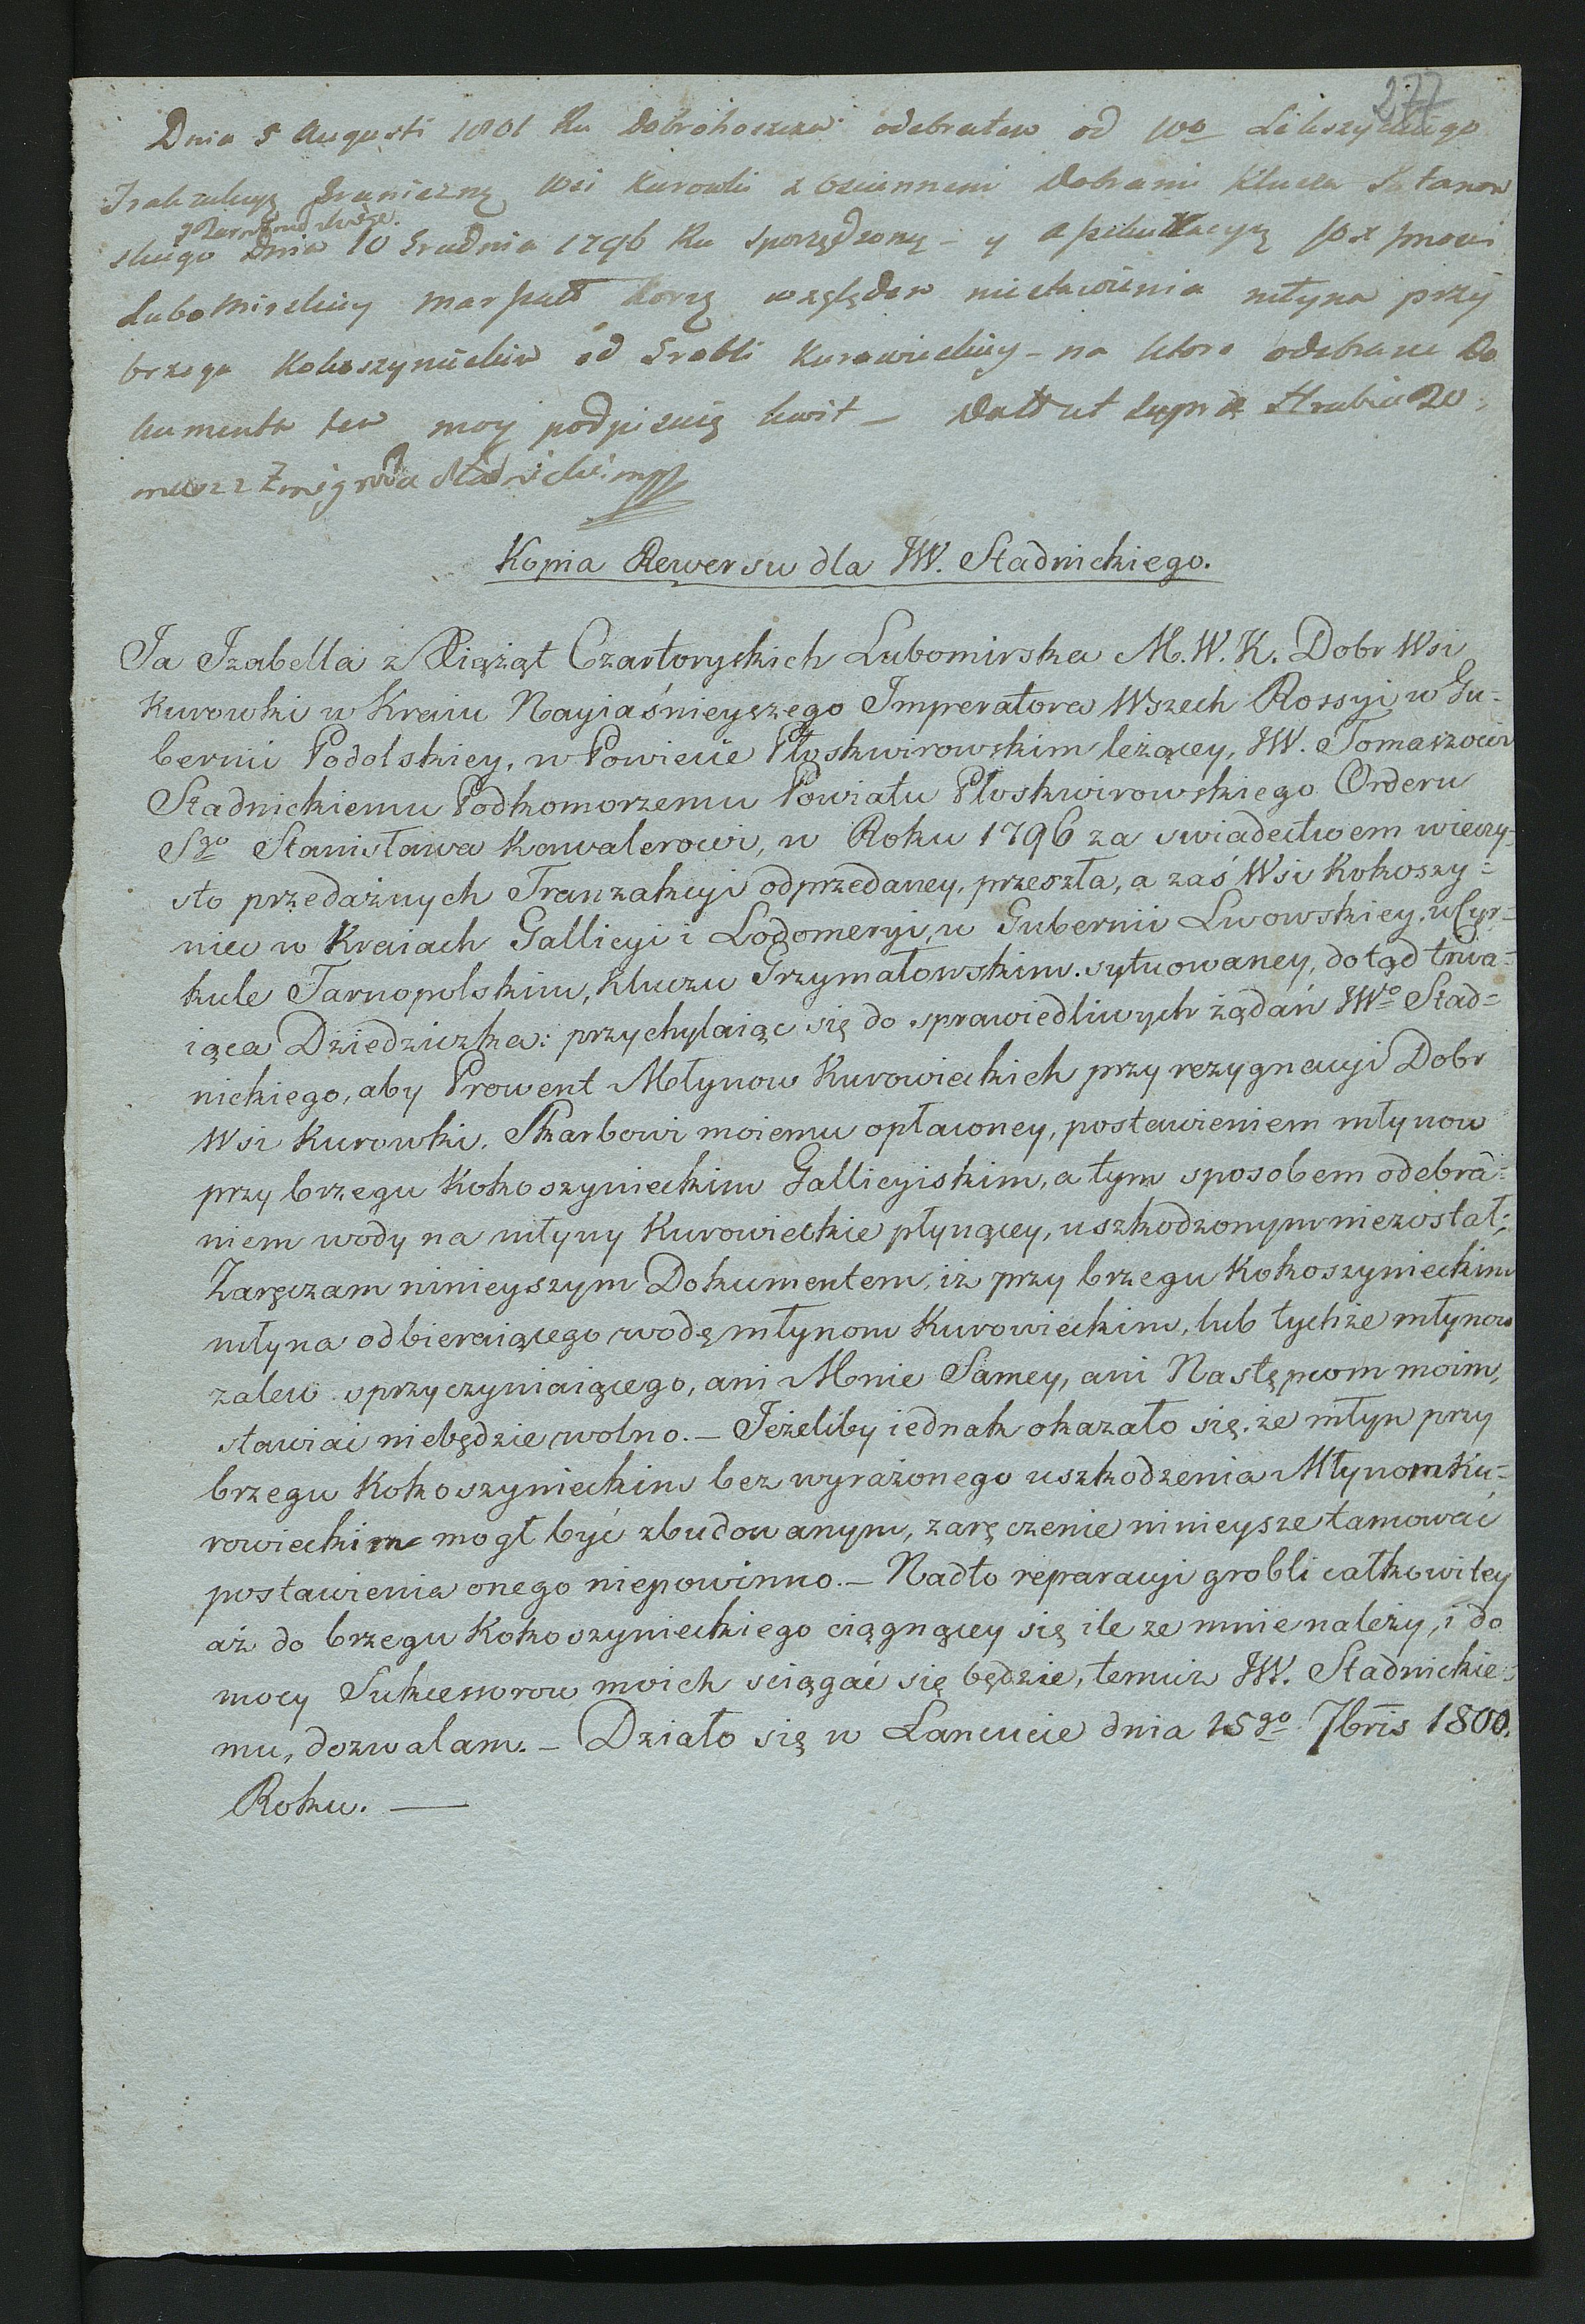 277
Dnia 5 Augusti 1801 Ru odebrałem od
Graniczną Wsi Kurowki z Dobrami Klucza Satanow
skiego Dnia 10 Grudnia 1796 Ru sporządzoną - y
Lubomirskiey względem niestawienia młyna przy
brzegu Kokoszynieckim od Grobli Kurowieckiey - na ktore odebrane Do
kumenta ten moy podpisuię kwit - Datt ut supra Hrabia 20
z Zmigroda Stadnicki mp
Kopia Rewersu dla JW. Stadnickiego.
Ja Izabella z Xiążąt Czartoryskich Lubomirska M. W. K. Dobr Wsi
Kurowki w Kraiu Nayiaśnieyszego Imperatora Wszech Rossyi w Gu-
bernii Podolskiey, w Powiecie Płoskwirowskim leżącey, JW. Tomaszowi
Stadnickiemu Podkomorzemu Powiatu Płoskwirowskiego Orderu
Sgo Stanisława Kawalerowi, w Roku 1796 za swiadectwem wieczy-
sto przedażnych Tranzakcyi odprzedaney, przeszła, a zaś Wsi Kokoszy-
niec w Kraiach Gallicyi i Lodomeryi, w Gubernii Lwowskiey, w Cyr-
kule Tarnopolskim, Kluczu Grzymałowskim sytuowaney, dotąd trwa-
iąca Dziedziczka: przychylaiąc się do sprawiedliwych żądań JWo Stad-
nickiego, aby Prowent Młynow Kurowieckich przy rezygnacyi Dobr
Wsi Kurowki, Skarbowi moiemu opłaconey, postawieniem młynow
przy brzegu Kokoszynieckim Gallicyiskim, a tym sposobem odebra-
niem wody na młyny Kurowieckie płynącey, uszkodzonym niezostał;
Zaręczam ninieyszym Dokumentem, iż przy brzegu Kokoszynieckim
młyna odbieraiącego wodę młynom Kurowieckim, lub tychże młynow
zalew sprzyczyniaiącego, ani Mnie Samey, ani Następcom moim,
stawiać niebędzie wolno. - Jeżeliby iednak okazało się, że młyn przy
brzegu Kokoszynieckim bez wyrażonego uszkodzenia Młynom Ku-
rowieckim mogł być zbudowanym, zaręczenie ninieysze tamować
postawienia onego niepowinno. - Nadto reparacyi grobli całkowitey
aż do brzegu Kokoszynieckiego ciągnącey się ile ze mnie należy, i do
mocy Sukcessorow moich sciągać się będzie, temuż JW. Stadnickie-
mu, dozwalam. - Działo się w Lancucie dnia 15go 7bris 1800.
Roku. -